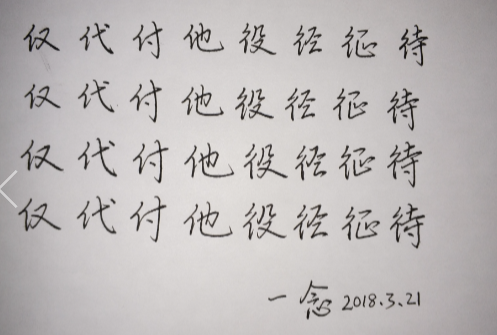 仅代付他役径征待
仅代付他役径征待
仅代付他役径征待
仅代付他役径征待
一念 2018.3.21